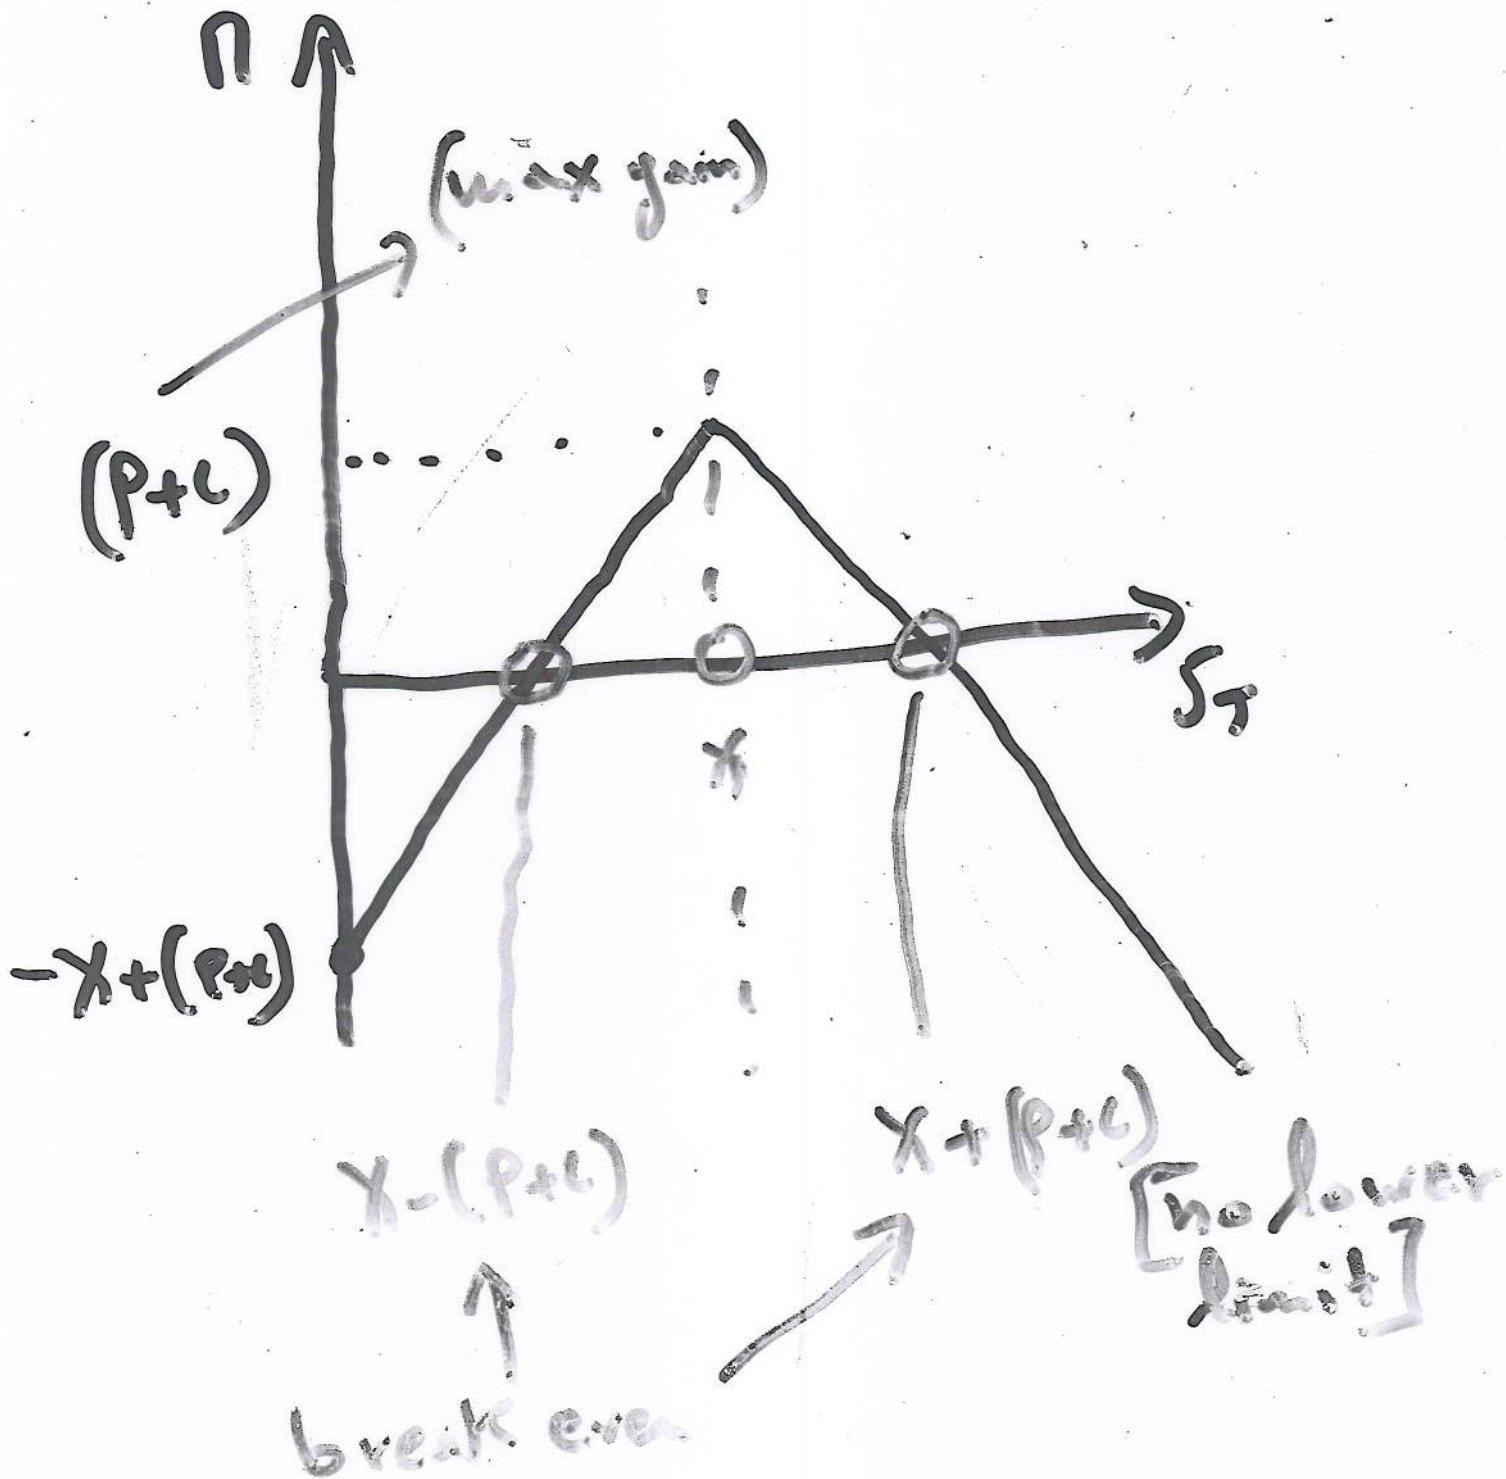 Π
(max gain)
(P+C)
S_T
X
-X+(P+C)
X-(P+C)
X+(P+C)
[no lower
limit]
break even